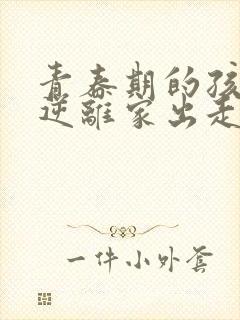 青春期的孩
逆离家出走
一件小外套